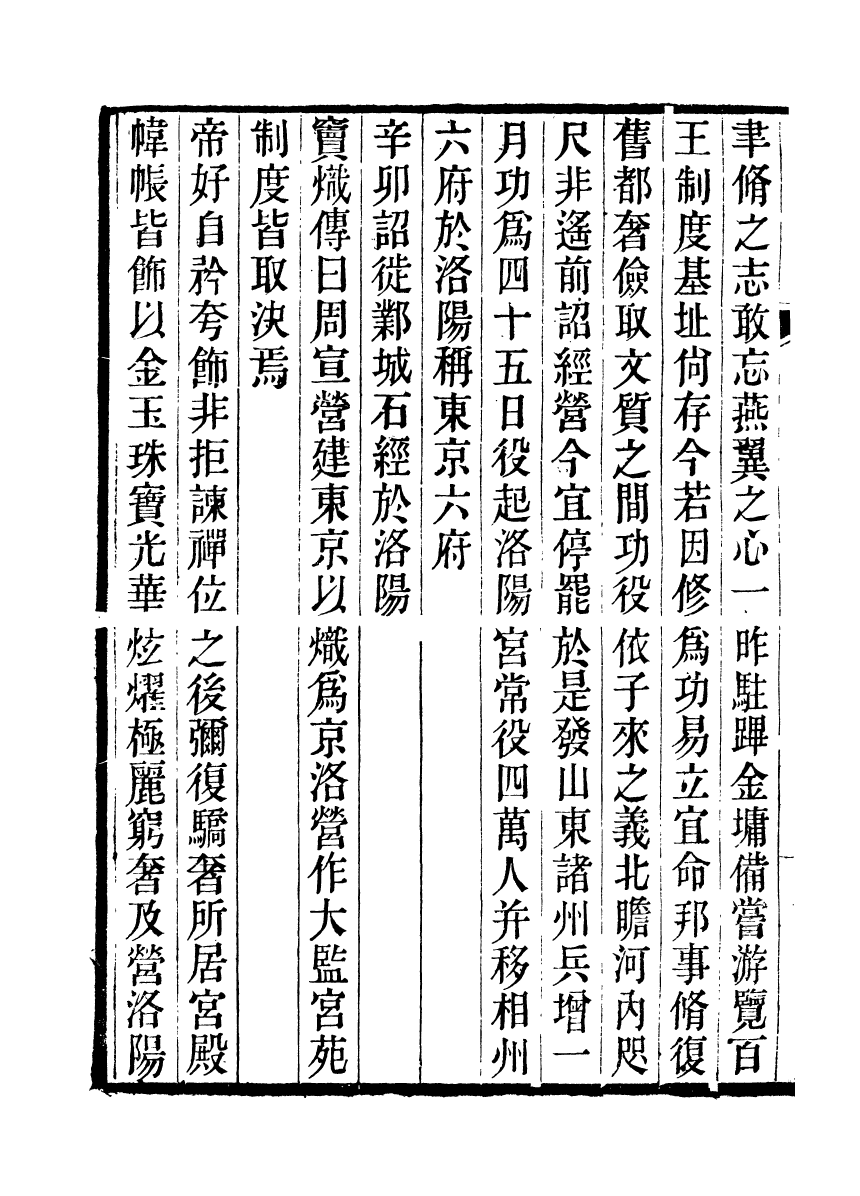 聿脩之志敢忘燕翼之心一昨駐蹕金墉備嘗游覽百
王制度基址尙存今若因修爲功易立宜命邦事脩復
舊都奢儉取文質之間功役依子來之義北瞻河內咫
尺非遙前詔經營今宜停罷於是發山東諸州兵增一
月功爲四十五日役起洛陽宮常役四萬人幷移相州
六府於洛陽稱東京六府
辛卯詔徙鄴城石經於洛陽
竇熾傳曰周宣營建東京以熾爲京洛營作大監宮苑
制度皆取決焉
帝好自矜夸飾非拒諫禪位之後彌復驕奢所居宮殿
幃帳皆飾以金玉珠寶光華炫燿極麗窮奢及營洛陽